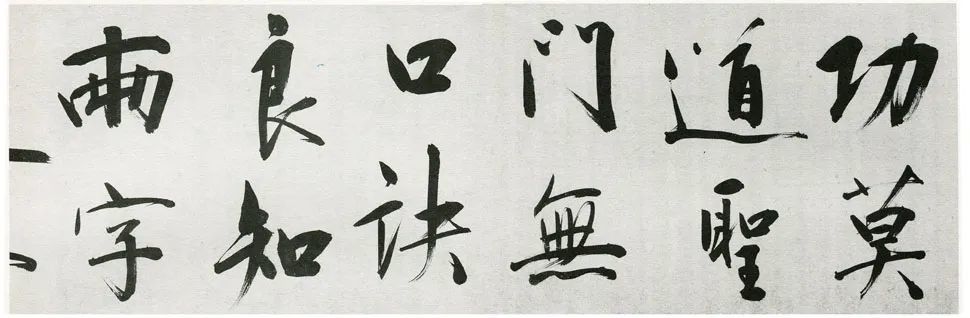 功莫
道聖
門無
口訣
良知
兩字